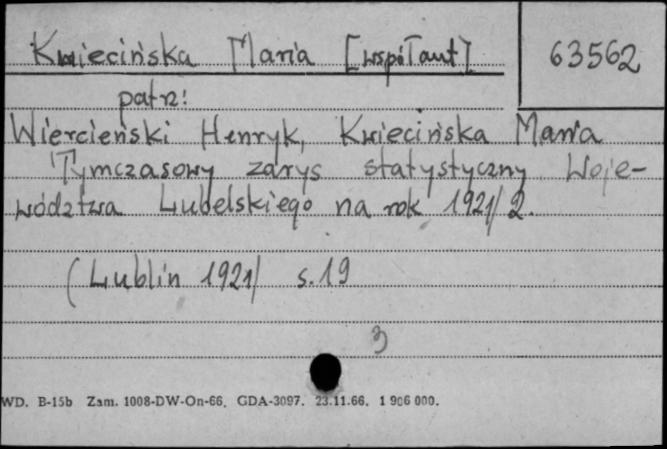 Kwiecińska Maria [współaut]
63562
patrz:
Wiercieński Henryk, Kwiecińska Maria
Tymczasowy zarys statystyczny Woje-
wództwa Lubelskiego na rok 1921/2.
(Lublin 1921/ s.19
3
WD. B-15b Zam. 1008-DW-On-66. GDA-3097. 23.11.66. 1 906 000.